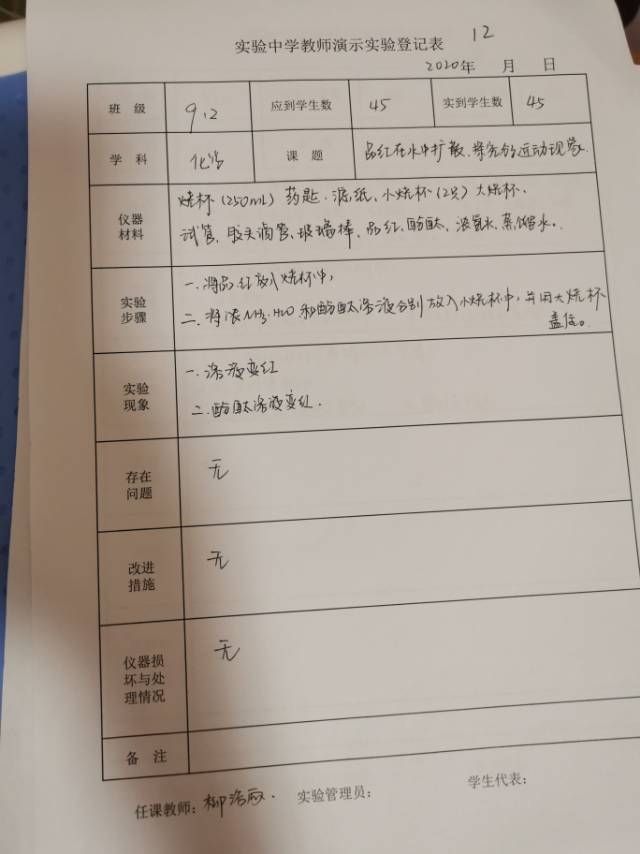 实验中学教师演示实验登记表 12
2020年 月 日
班 级 9.2 应到学生数 45 实到学生数 45
学 科 化学 课 题 品红在水中扩散、探究分子运动现象
仪器材料
烧杯(250mL) 药匙、滤纸、小烧杯(2只)大烧杯、
试管、胶头滴管、玻璃棒、品红、酚酞、浓氨水、蒸馏水。
实验步骤
一.将品红放入烧杯中,
二.将浓NH3·H2O和酚酞溶液分别放入小烧杯中,并用大烧杯
盖住。
实验现象
一.溶液变红
二.酚酞溶液变红.
存在问题
无
改进措施
无
仪器损坏与处理情况
无
备 注
任课教师: 柳 实验管理员: 学生代表: